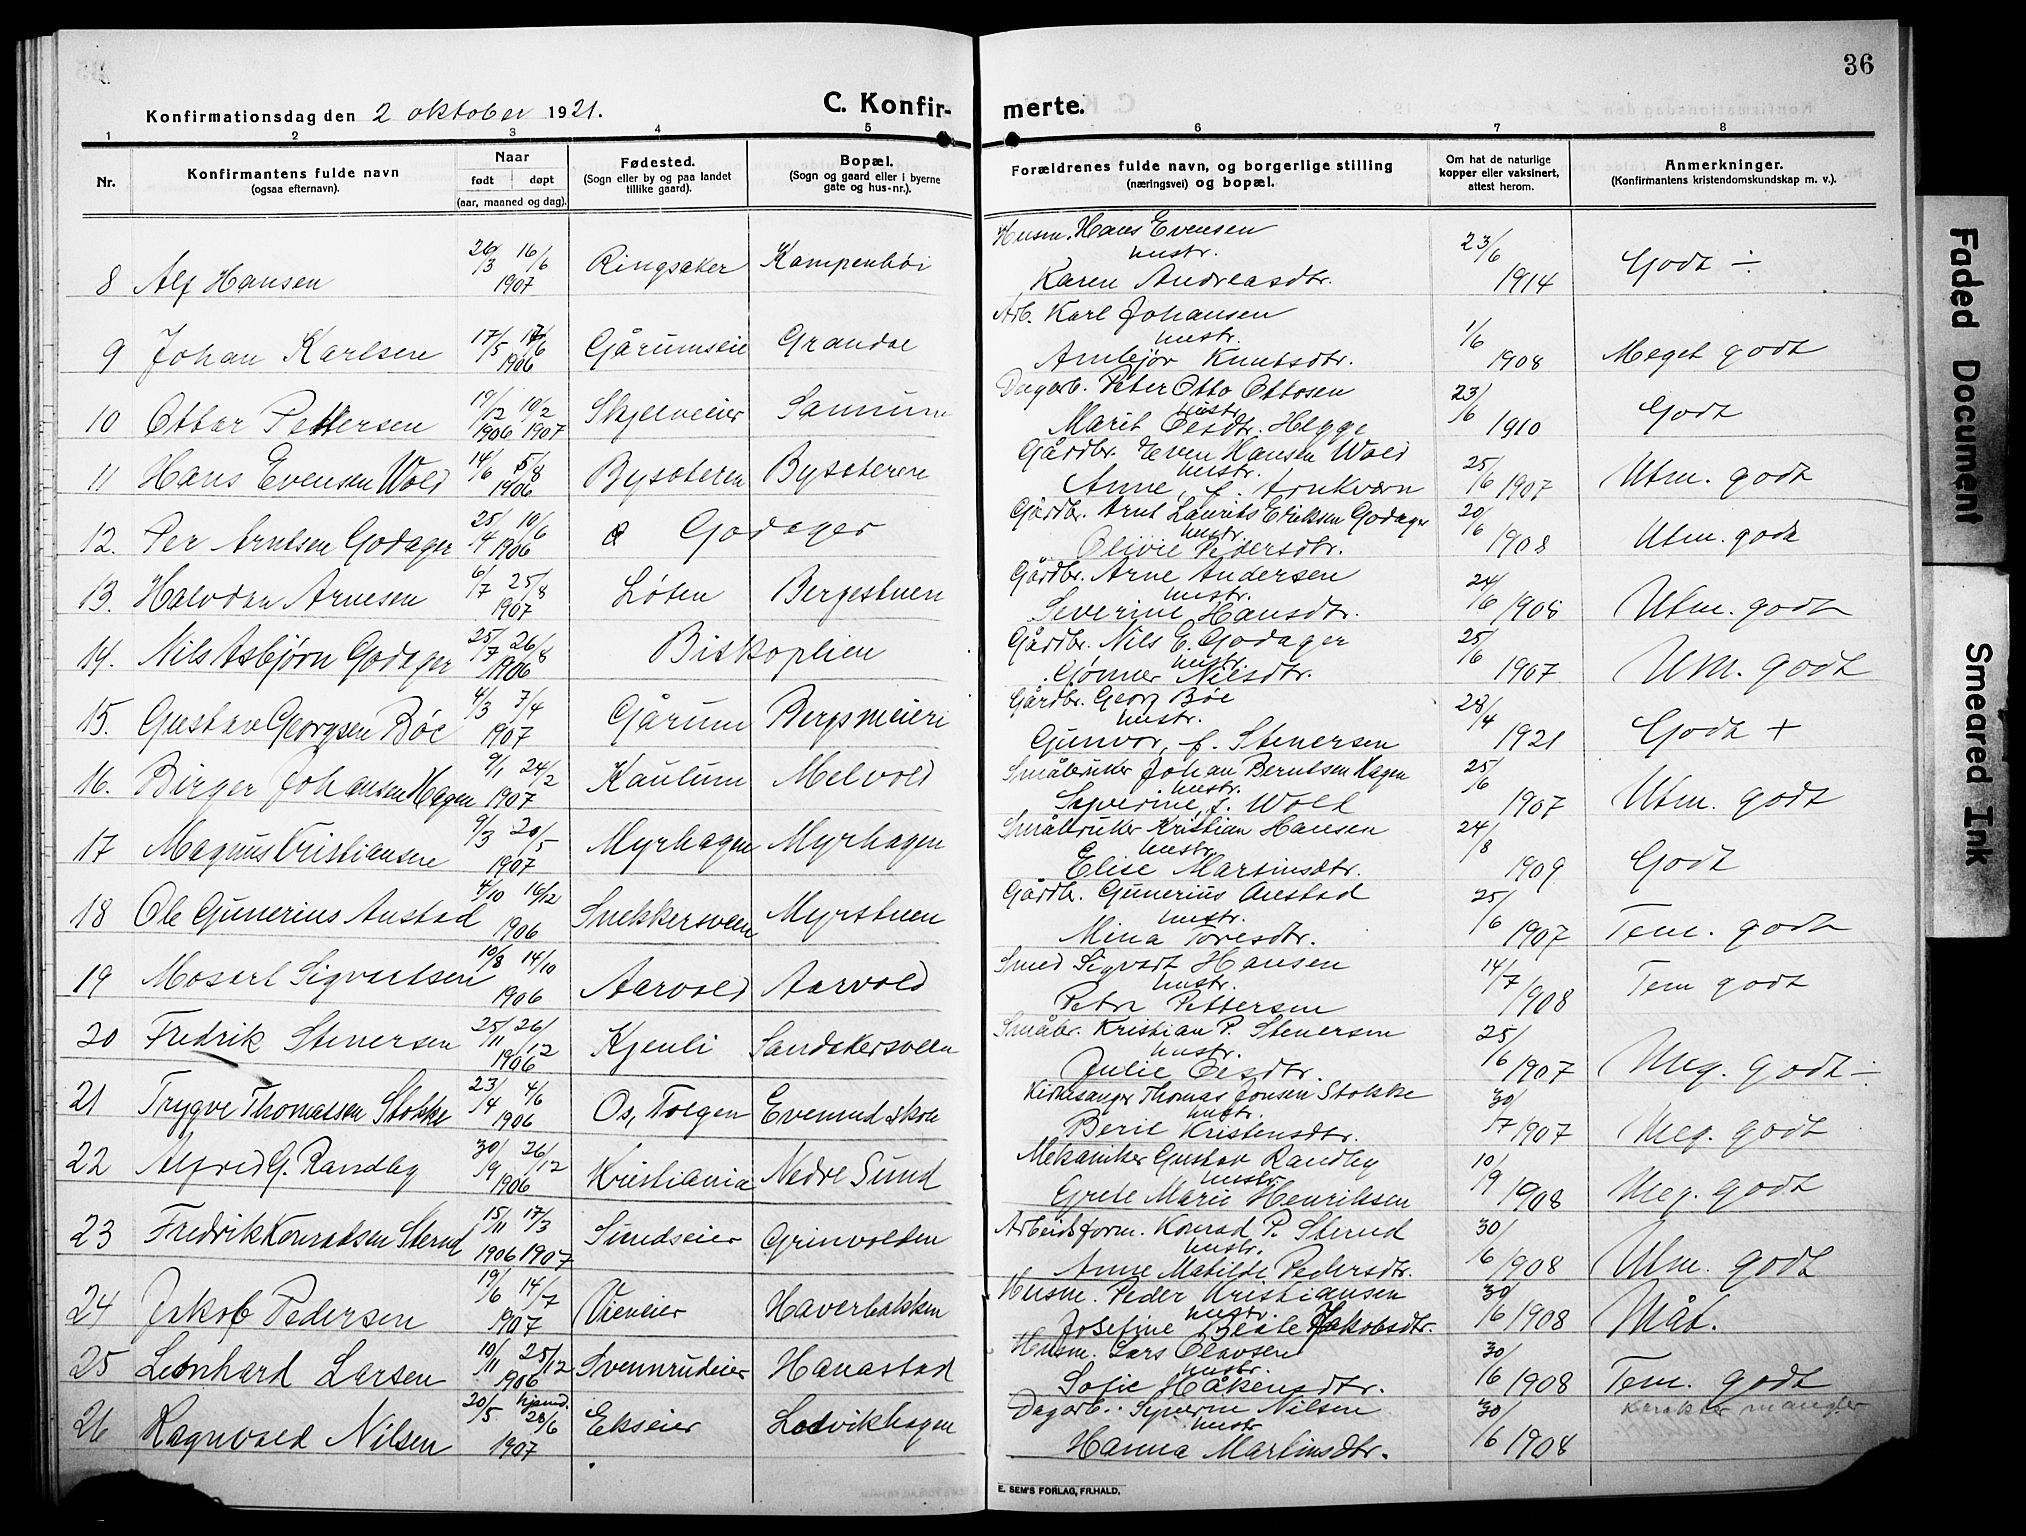 36
Konfirmationsdag den 2 oktober 1921.
C. Konfirmerte.
1 2 3 4 5 6 7 8
Nr.
Konfirmantens fulde navn
(ogsaa efternavn).
Naar
født døpt
(aar, maaned og dag).
Fødested.
(Sogn eller by og paa landet
tillike gaard).
Bopæl.
(Sogn og gaard eller i byerne
gate og hus-nr.).
Forældrenes fulde navn, og borgerlige stilling
(næringsvei) og bopæl.
Om hat de naturlige
kopper eller vaksinert,
attest herom.
Anmerkninger.
(Konfirmantens kristendomskundskap m. v.).
8 Alf Hansen 26/3 16/6 1907 Ringsaker Kampenhøi Husm. Hans Evensen hustr. Karen Andreasdtr. 23/6 1914 Godt ÷
9 Johan Karlsen 17/5 17/6 1906 Gårumseie Grandae Arb. Karl Johansen hustr. Arnbjør Knutsdtr. 1/6 1908 Meget godt
10 Ottar Pettersen 19/12 1906 10/2 1907 Skjelveeier Sannum Dagarb. Peter Otto Ottosen hustr. Marit Olsdtr. Hegge 23/6 1910 Godt
11 Hans Evensen Wold 14/6 5/8 1906 Bysæteren Bysæteren Gårdbr. Even Hansen Wold hustr. Anne, f. Arnkværn 25/6 1907 Utm. godt
12. Per Arntsen Godager 25/4 10/6 1906 Godager Gårdbr. Arnt Laurits Eriksen Godager hustr. Olivie Pedersdtr. 20/6 1908 Utm. godt
13. Halvdan Arnesen 6/7 25/8 1907 Løten Bergestuen Gårdbr. Arne Andersen hustr. Severine Hansdtr. 24/6 1908 Utm. godt
14. Nils Asbjørn Godager 25/7 26/8 1906 Biskoplien Gårdbr. Nils E. Godager hustr. Gjønner Nilsdtr. 25/6 1907 Utm. godt
15. Gustav Georgsen Bøe 4/3 7/4 1907 Gårum Bergsmeieri Gårdbr. Georg Bøe hustr. Gunvor, f. Stenersen 28/4 1921 Godt +
16. Birger Johansen Hagen 9/1 24/2 1907 Kaulum Melvold Småbruker Johan Berntsen Hagen hustr. Syverine, f. Wold 25/6 1907 Utm. godt
17 Magnus Kristiansen 9/3 20/5 1907 Myrhagen Myrhagen Småbruker Kristian Hansen hustr. Elise Martinsdtr. 24/8 1909 Godt
18 Ole Gunerius Anstad 4/10 16/12 1906 Snekkersveen Myrstuen Gårdbr. Gunerius Anstad hustr. Mina Toresdtr. 25/6 1907 Tem. godt
19 Mosart Sigvartsen 10/8 14/10 1906 Aarvold Aarvold Smed Sigvart Hansen hustr. Petra Pettersen 14/7 1908 Tem godt
20 Fredrik Stenersen 25/11 26/12 1906 Kjenli Sandakersveen Småbr. Kristian P. Stenersen hustr. Julie Olsdtr. 25/6 1907 Meg. godt ÷
21 Trygve Thomassen Stokke 23/4 4/6 1906 Os, Tolgen Evenrud skole Kirkesanger Thomas Jonsen Stokke hustr. Berit Kristensdtr. 30/7 1907 Meg. godt
22 Alfred G. Randby 30/9 26/12 1906 Kristiania Nedre Sund Mekaniker Gustav Randby hustr. Grete Marie Henriksen 10/9 1908 Meg. godt
23 Fredrik Konradsen Sterud 15/11 1906 17/3 1907 Sundseier Grinvolden Arbeidsform. Konrad P. Sterud hustr. Anne Matilde Pedersdtr. 30/6 1908 Utm. godt
24 Jakob Pedersen 19/6 14/7 1907 Vieneier Haverbakken Husm. Peder Kristiansen hustr. Josefine Beate Jakobsdtr. 30/6 1908 Måt.
25 Leonhard Larsen 19/11 25/12 1906 Svennrudeier Hanastad Husm. Lars Olavsen hustr. Sofie Håkensdtr. 30/6 1908 Tem. godt
26 Ragnvald Nilsen 20/5 hjemd. 28/6 1907 Ekseier Lodvikhagen Dagarb. Syverin Nilsen hustr. Hanna Martinsdtr. 30/6 1908 Karakter mangler
E. SEM'S FORLAG, FR.HALD.
Faded Document
Smeared Ink